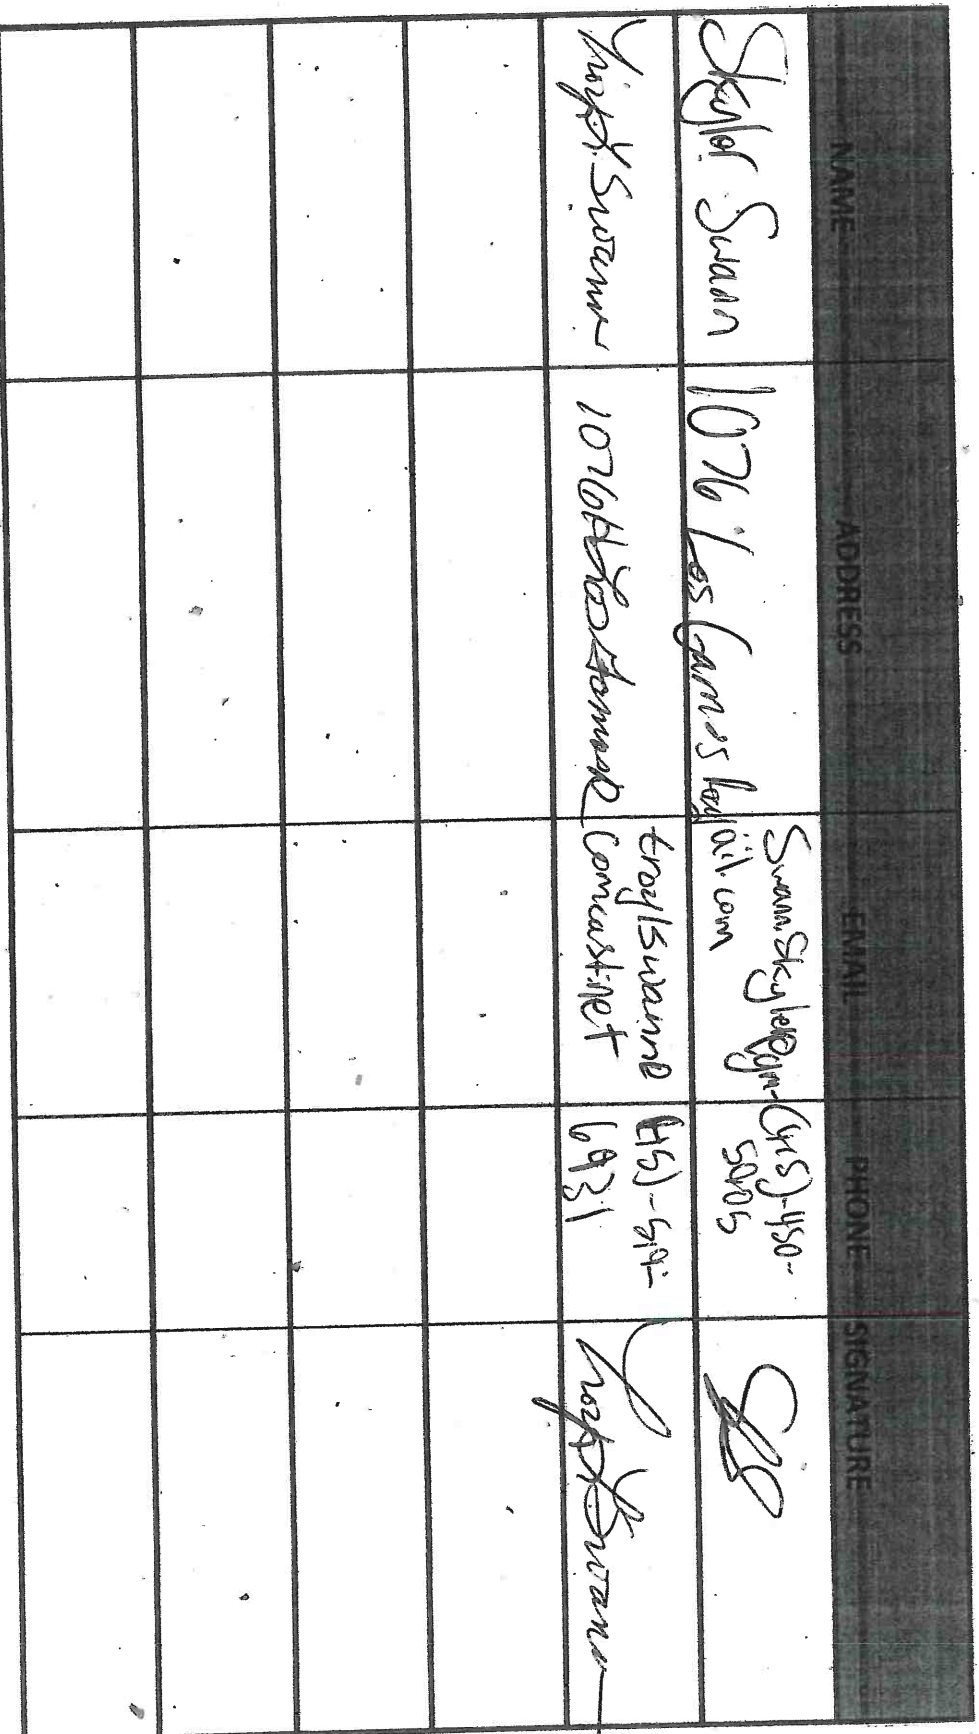 NAME ADDRESS EMAIL PHONE SIGNATURE
Skylor Swann
1076 Los Gamos
SwannSkyler@gm-
ail.com
(415)-450-
5005
Troy L Swann
1076 Los Gamos
troylswann@
comcast.net
415)-519-
6931